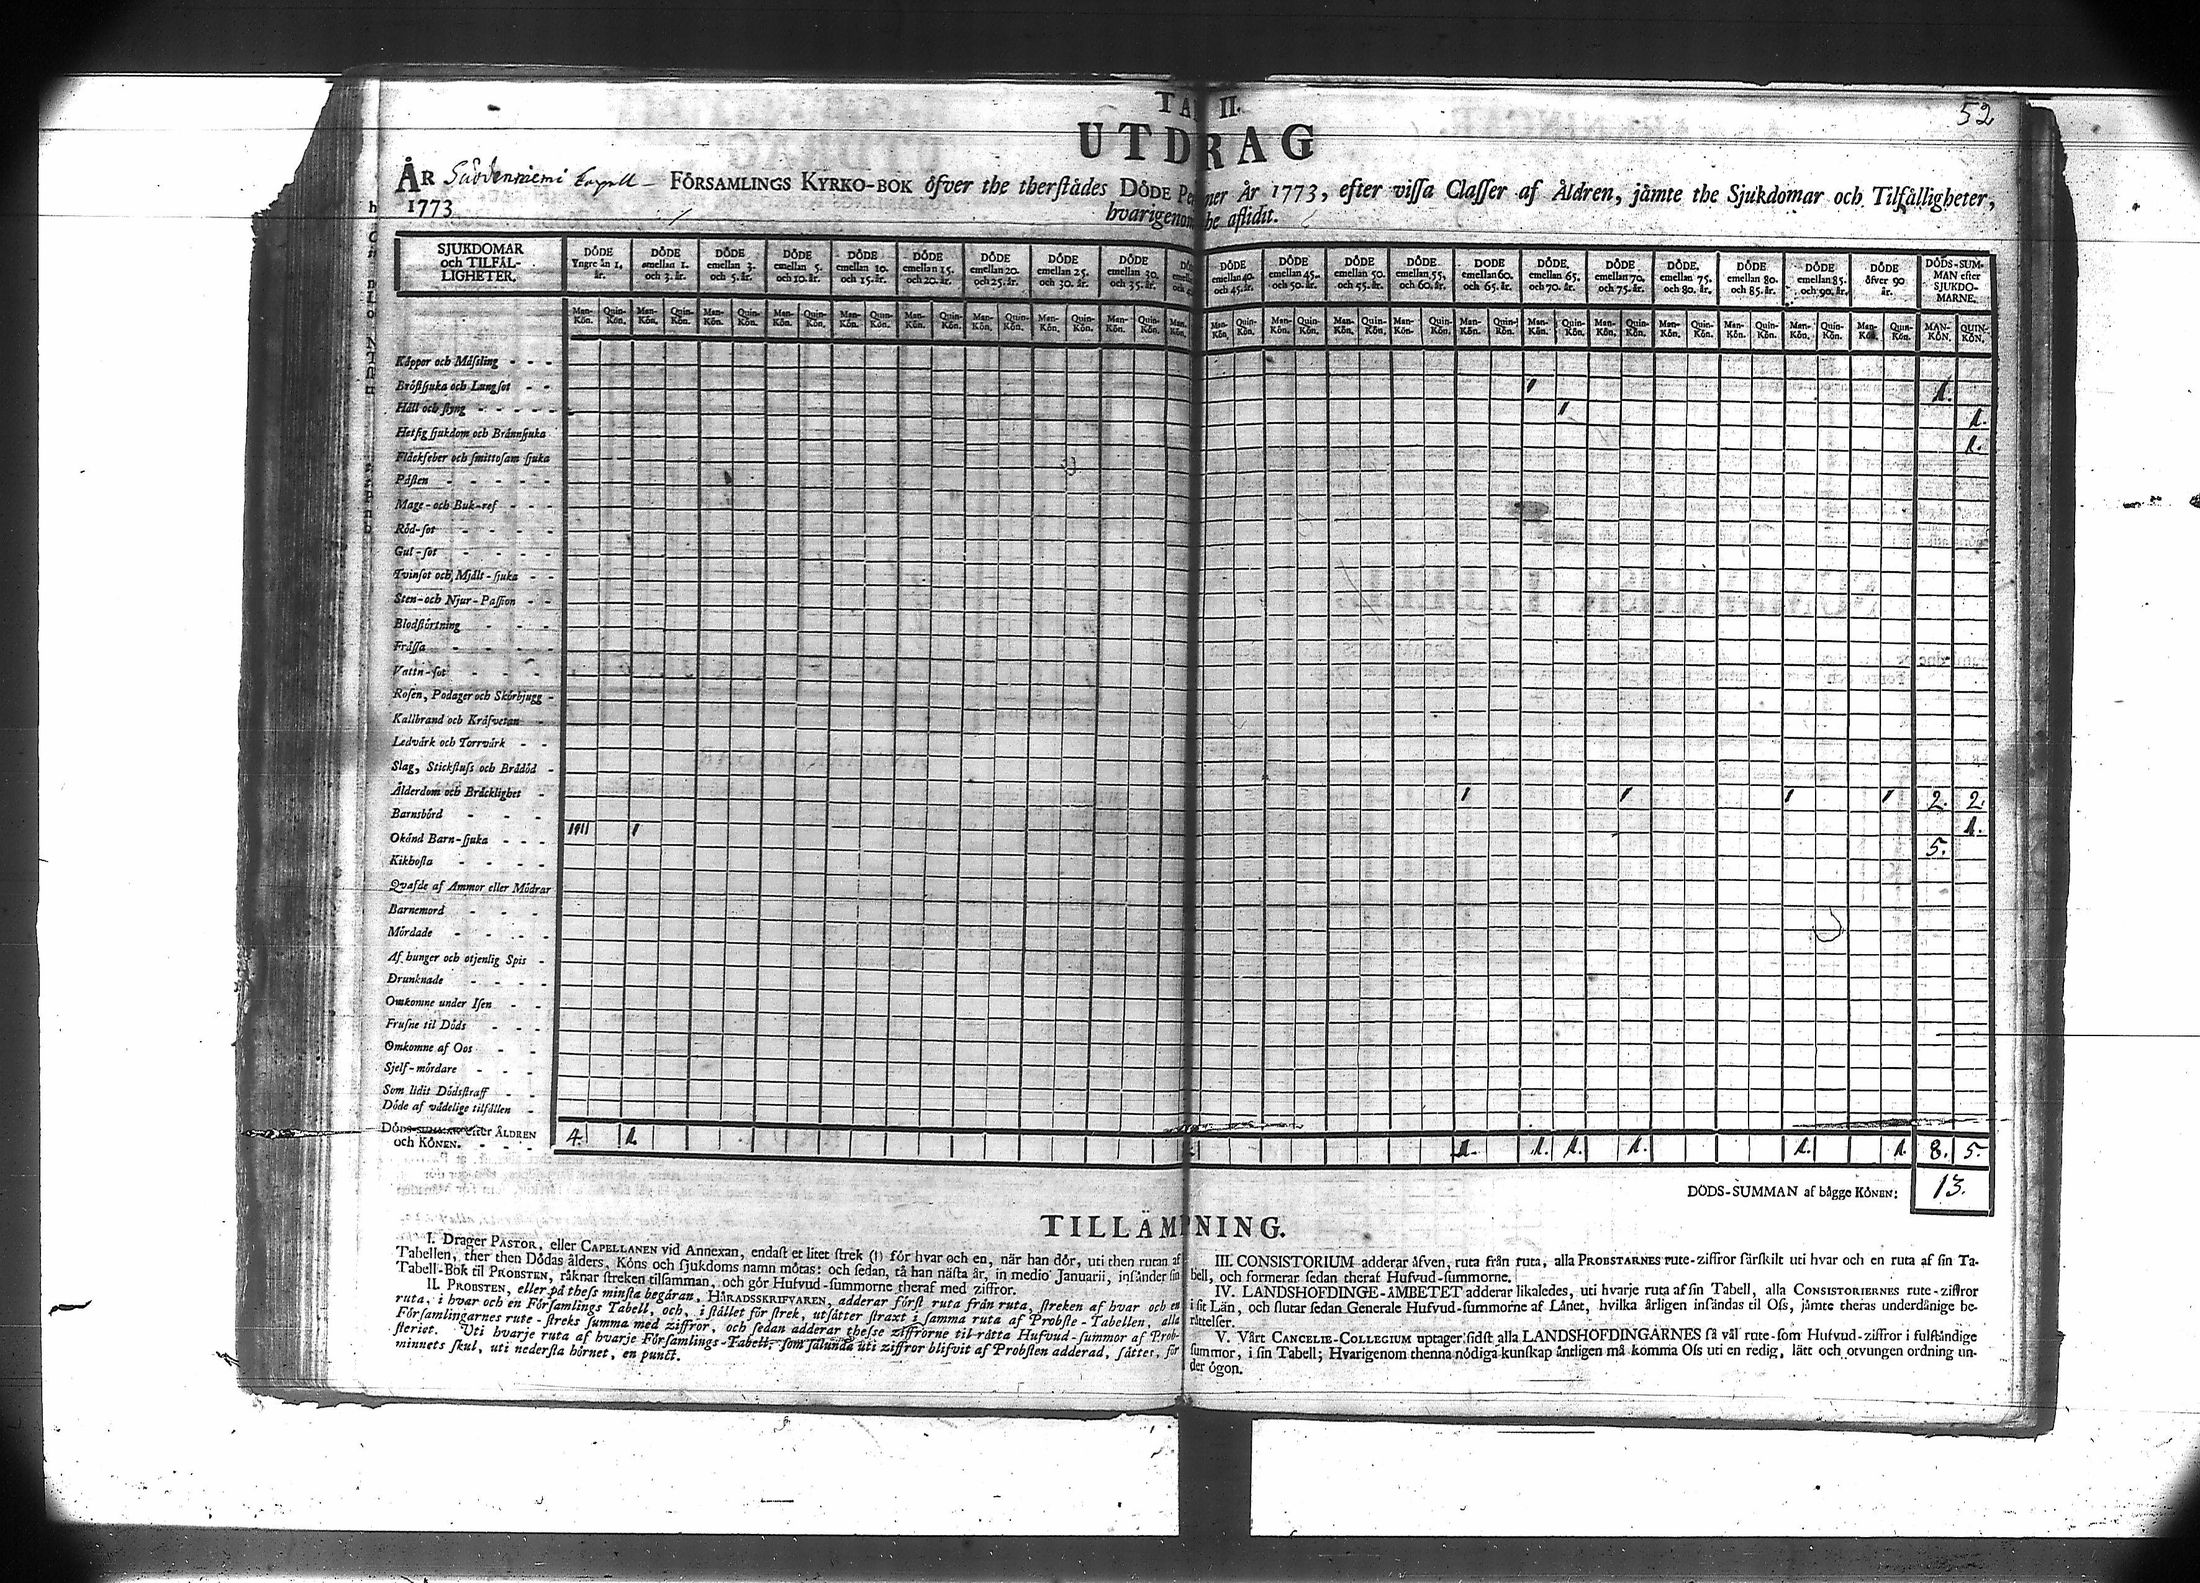 52
TAB II.
UTDRAG
ÅR Suodenniemi Capell FÖRSAMLINGS KYRKO-BOK öfver the therstädes DÖDE Personer År 1773, efter vissa Classer af Åldren, jämte the Sjukdomar och Tilfälligheter,
1773 hvarigenom the aflidit.
SJUKDOMAR och TILFÄLLIGHETER.
DÖDE Yngre än 1. år.
DÖDE emellan 1. och 3. år.
DÖDE emellan 3. och 5. år.
DÖDE emellan 5. och 10. år.
DÖDE emellan 10. och 15. år.
DÖDE emellan 15. och 20. år.
DÖDE emellan 20. och 25. år.
DÖDE emellan 25. och 30. år.
DÖDE emellan 30. och 35. år.
DÖDE emellan 40. och 45. år.
DÖDE emellan 45. och 50. år.
DÖDE emellan 50. och 55. år.
DÖDE emellan 55. och 60. år.
DÖDE emellan 60. och 65. år.
DÖDE emellan 65. och 70. år.
DÖDE emellan 70. och 75. år.
DÖDE emellan 75. och 80. år.
DÖDE emellan 80. och 85. år.
DÖDE emellan 85. och 90. år.
DÖDE öfver 90 år.
DÖDS-SUMMAN efter SJUKDOMARNE.
Man-Kön. Quin-Kön. Man-Kön. Quin-Kön. Man-Kön. Quin-Kön. Man-Kön. Quin-Kön. Man-Kön. Quin-Kön. Man-Kön. Quin-Kön. Man-Kön. Quin-Kön. Man-Kön. Quin-Kön. Man-Kön. Quin-Kön. Man-Kön. Man-Kön. Quin-Kön. Man-Kön. Quin-Kön. Man-Kön. Quin-Kön. Man-Kön. Quin-Kön. Man-Kön. Quin-Kön. Man-Kön. Quin-Kön. Man-Kön. Quin-Kön. Man-Kön. Quin-Kön. Man-Kön. Quin-Kön. Man-Kön. Quin-Kön. Man-Kön. Quin-Kön. MAN-KÖN. QUIN-KÖN.
Koppor och Mässling
Bröstsjuka och Lungsot 1 1.
Håll och styng 1 1.
Hetsig sjukdom och Brännsjuka 1.
Fläckfeber och smittosam sjuka
Pästen
Mage- och Buk-ref
Röd-sot
Gul-sot
Tvinsot och Mjält-sjuka
Sten- och Njur-Passion
Blodstörtning
Frässa
Vattn-sot
Rosen, Podager och Skörbjugg
Kallbrand och Kräfvetan
Ledvärk och Torrvärk
Slag, Stickfluss och Brådöd
Ålderdom och Bräcklighet 1 1 1 1 2. 2.
Barnsbörd 1.
Okänd Barn-sjuka 1111 1 5.
Kikhosta
Qvafde af Ammor eller Mödrar
Barnemord
Mördade
Af hunger och otjenlig Spis
Drunknade
Omkomne under Isen
Frusne til Döds
Omkomne af Oos
Sjelf-mördare
Som lidit Dödsstraff
Döde af vådelige tilfällen
DÖDS-SUMMAN efter ÅLDREN
och KÖNEN. 4. 1. 1. 1. 1. 1. 1. 1. 8. 5.
DÖDS-SUMMAN af bägge KÖNEN: 13.
TILLÄMNING.
I. Drager PASTOR, eller CAPELLANEN vid Annexan, endast et litet strek (1) för hvar och en, när han dör, uti then rutan af
Tabellen, ther then Dödas ålders, Köns och sjukdoms namn mötas: och sedan, tå han nästa år, in medio Januarii, insänder sin
Tabell-Bok til PROBSTEN, räknar streken tilsamman, och gör Hufvud-summorne theraf med ziffror.
II. PROBSTEN, eller på thess minsta begäran, HÄRADSSKRIFVAREN, adderar först ruta från ruta, streken af hvar och en
ruta, i hvar och en Församlings Tabell, och, i stället för strek, utsätter straxt i samma ruta af Probste-Tabellen, alla
Församlingarnes rute-streks summa med ziffror, och sedan adderar thesse ziffrorne til rätta Hufvud-summor af Prob-
steriet. Uti hvarje ruta af hvarje Församlings-Tabell, som sålunda uti ziffror blifvit af Probsten adderad, sätter, för
minnets skul, uti nedersta hörnet, en punct.
III. CONSISTORIUM adderar äfven, ruta från ruta, alla PROBSTARNES rute-ziffror särskilt uti hvar och en ruta af sin Ta-
bell, och formerar sedan theraf Hufvud-summorne.
IV. LANDSHÖFDINGE-ÄMBETET adderar likaledes, uti hvarje ruta af sin Tabell, alla CONSISTORIERNES rute-ziffror
i sit Län, och slutar sedan Generale Hufvud-summorne af Länet, hvilka årligen insändas til Oss, jämte theras underdånige be-
rättelser.
V. Vårt CANCELIE-COLLEGIUM uptager sidst alla LANDSHÖFDINGARNES så väl rute-som Hufvud-ziffror i fulständige
summor, i sin Tabell; Hvarigenom thenna nödiga kunskap äntligen må komma Oss uti en redig, lätt och otvungen ordning un-
der ögon.